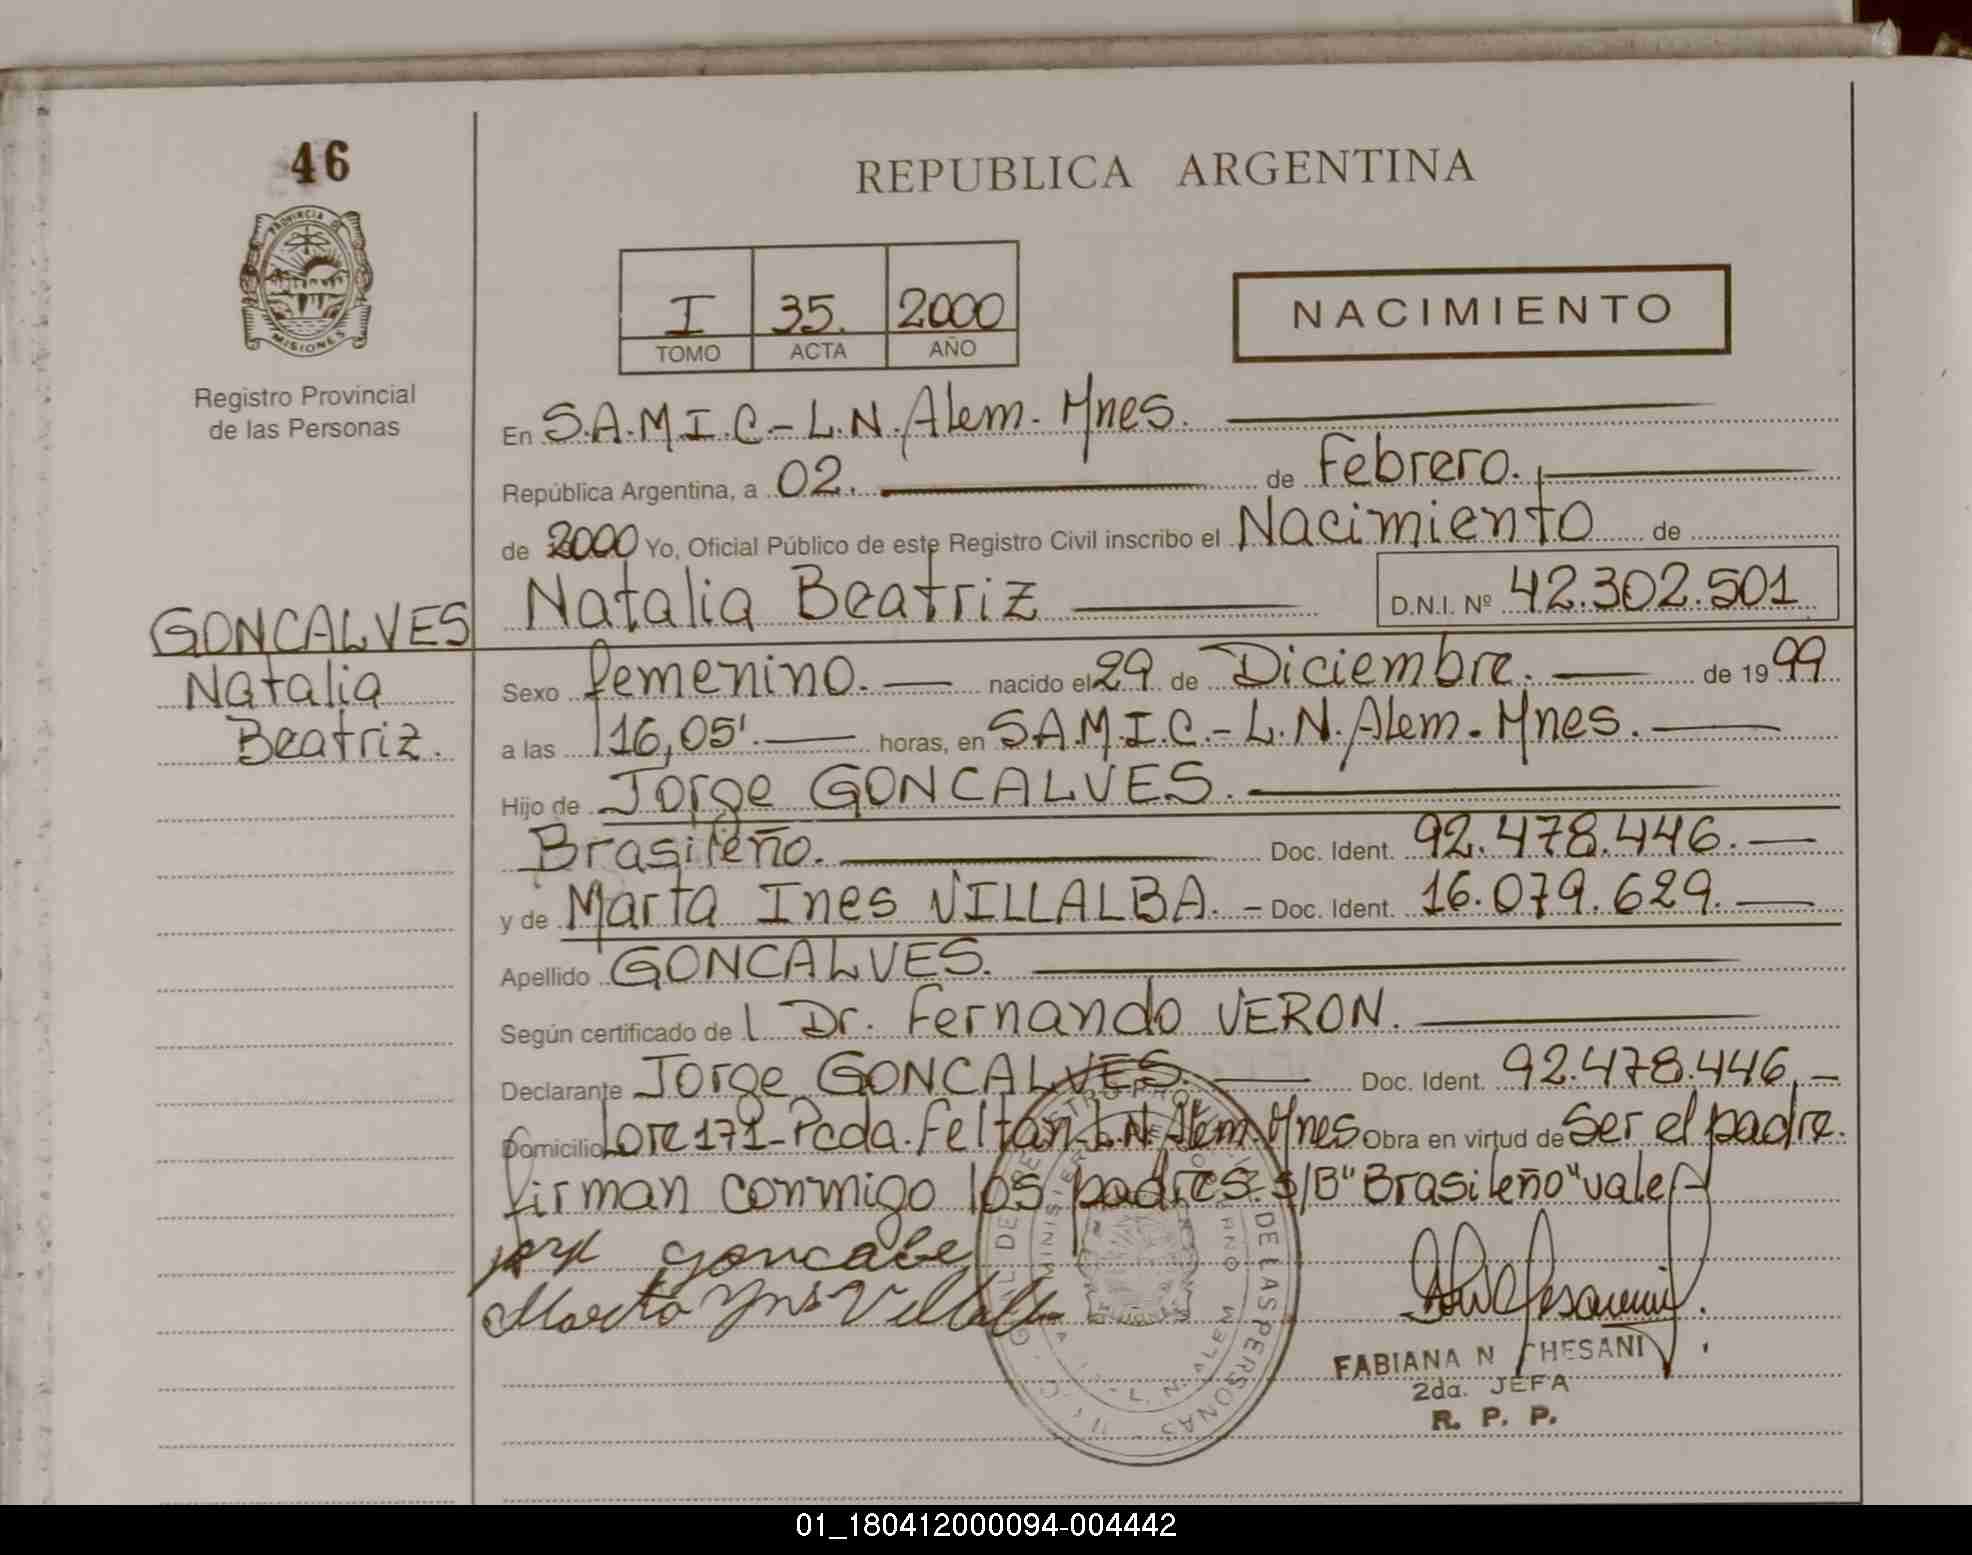 46
PROVINCIA DE
MISIONES
Registro Provincial
de las Personas
REPUBLICA ARGENTINA
I 35. 2000
TOMO ACTA AÑO
NACIMIENTO
En S.A.M.I.C.- L.N. Alem. Mnes.
República Argentina, a 02. de Febrero.
de 2000 Yo, Oficial Público de este Registro Civil inscribo el Nacimiento de
Natalia Beatriz D.N.I. Nº 42.302.501
GONCALVES
Natalia
Beatriz.
Sexo femenino. nacido el 29 de Diciembre. de 1999
a las 16,05'. horas, en S.A.M.I.C.- L.N. Alem. Mnes.
Hijo de Jorge GONCALVES.
Brasileño. Doc. Ident. 92.478.446.
y de Marta Ines VILLALBA. - Doc. Ident. 16.079.629.
Apellido GONCALVES.
Según certificado de l Dr. Fernando VERON.
Declarante Jorge GONCALVES. Doc. Ident. 92.478.446.-
Domicilio Lote 171-Pcda. Feltan-L.N. Alem. Mnes Obra en virtud de Ser el padre.
firman conmigo los padres. s/B "Brasileño" vale
Jorge goncalve
Marta Ines Villalba
DE LAS PERSONAS
L. N. ALEM
FABIANA N CHESANI
2da. JEFA
R. P. P.
01_180412000094-004442